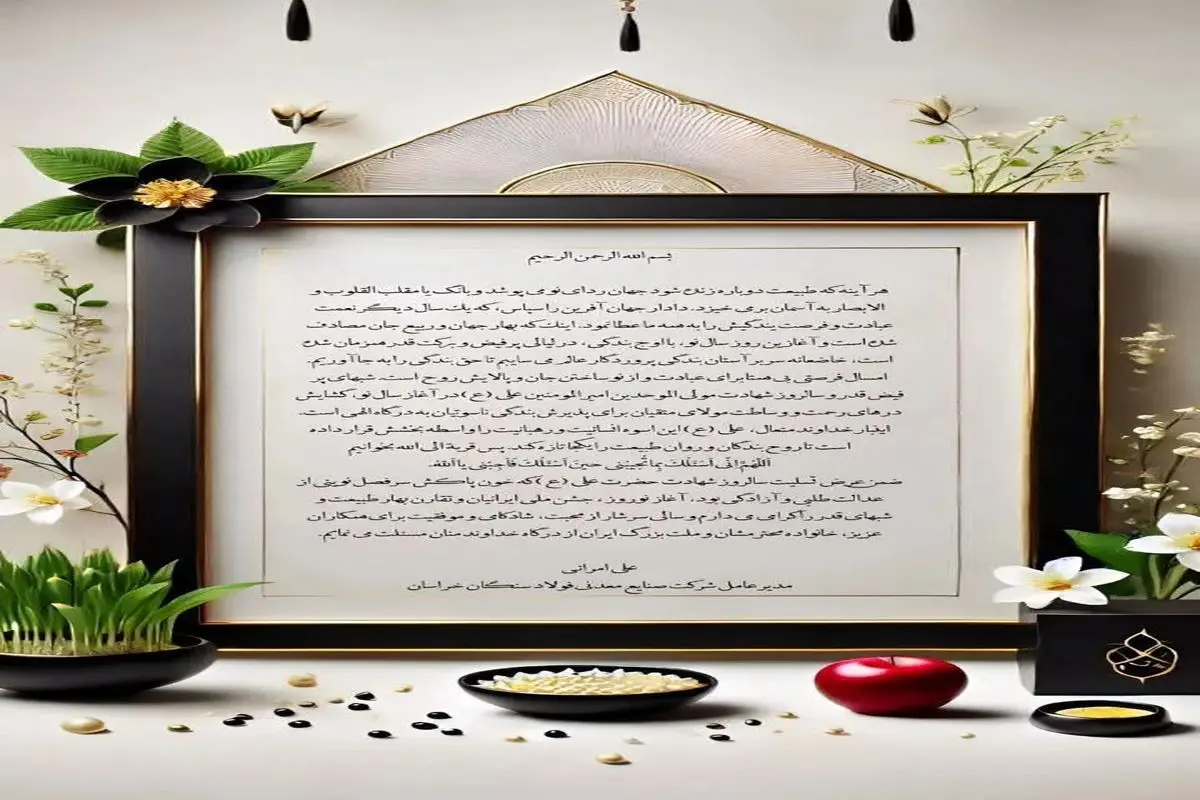 بسم الله الرحمن الرحیم
هر آینه که طبیعت دوباره زنده شود جهان ردای نو می پوشد و بانگ یا مقلب القلوب و
الابصار به آسمان بر می خیزد. دادار جهان آفرین را سپاس، که یک سال دیگر نعمت
عبادت و فرصت بندگیش را به همه ما عطا نمود. اینک که بهار جهان و ربیع جان مصادف
شده است و آغازین روز سال نو، با اوج بندگی، در لیالی پر فیض و برکت قدر همزمان شده
است، خاضعانه سر بر آستان بندگی پروردگار عالم می ساییم تا حق بندگی را به جا آوریم.
امسال فرصتی بی همتا برای عبادت و از نو ساختن جان و پالایش روح است. شبهای پر
فیض قدر و سالروز شهادت مولی الموحدین امیرالمومنین علی (ع) در آغاز سال نو، گشایش
درهای رحمت و وساطت مولای متقیان برای پذیرش بندگی ناسوتیان به درگاه الهی است.
اینبار خداوند متعال، علی (ع) این اسوه انسانیت و رهبانیت را واسطه بخشش قرار داده
است تا روح بندگان و روان طبیعت را یکجا تازه کند. پس قربة الی الله بخوانیم
اَللّهُمَّ اِنّی اَسئَلُکَ بِما تُجیبُنی حینَ اَسئَلُکَ فَاَجِبنی یا اَللهُ.
ضمن عرض تسلیت سالروز شهادت حضرت علی (ع) که خون پاکش سرفصل نوینی از
عدالت طلبی و آزادگی بود، آغاز نوروز، جشن ملی ایرانیان و تقارن بهار طبیعت و
شبهای قدر را گرامی می دارم و سالی سرشار از محبت، شادکامی و موفقیت برای همکاران
عزیز، خانواده محترمشان و ملت بزرگ ایران از درگاه خداوند منان مسئلت می نمایم.
علی امرانی
مدیرعامل شرکت صنایع معدنی فولاد سنگان خراسان